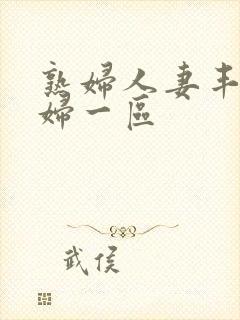 熟婦人妻丰
婦一區
武侯